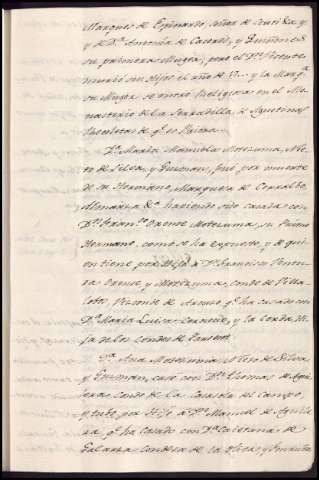 Marques de Espinardo, señor de
y de D.ª Antonia de Caceres, y Quiñones
su primera Muger, pero el D.n Vicente
murio sin Hijos el año de 17... y la Marq.ª
su Muger, se entró Religiosa en el Mo-
nasterio de la Serradilla, de Agustinas
Recoletas de q.e es Priora.
D.ª Maria Manuela Motezuma, Nie-
to de Silva, y Guzman, fué por muerte
de su Hermano, Marquesa de Cerralbo,
Almarza &.ª haviendo sido casada con
D.n Fran.co Orense Motezuma, su Primo
Hermano, como se ha expuesto, y de qui-
en tiene por Hijo a D.n Francisco Ventu-
ra Orense, y Motezuma, Conde de Villa-
lobos, Vizconde de Amaya, q.e ha casado con
D.ª Maria Luisa y la Cerda Hi-
ja de los Condes de Parsent.
D.ª Ana Motezuma, Nieto de Silva,
y Guzman, casó con D.n Thomas de Agui-
lera Conde de la Casasola del Campo,
y tubo por Hijo á D.n Manuel de Aguile-
ra, q.e ha casado con D.ª Cayetana de
Galarza Condesa de la Oliva, y